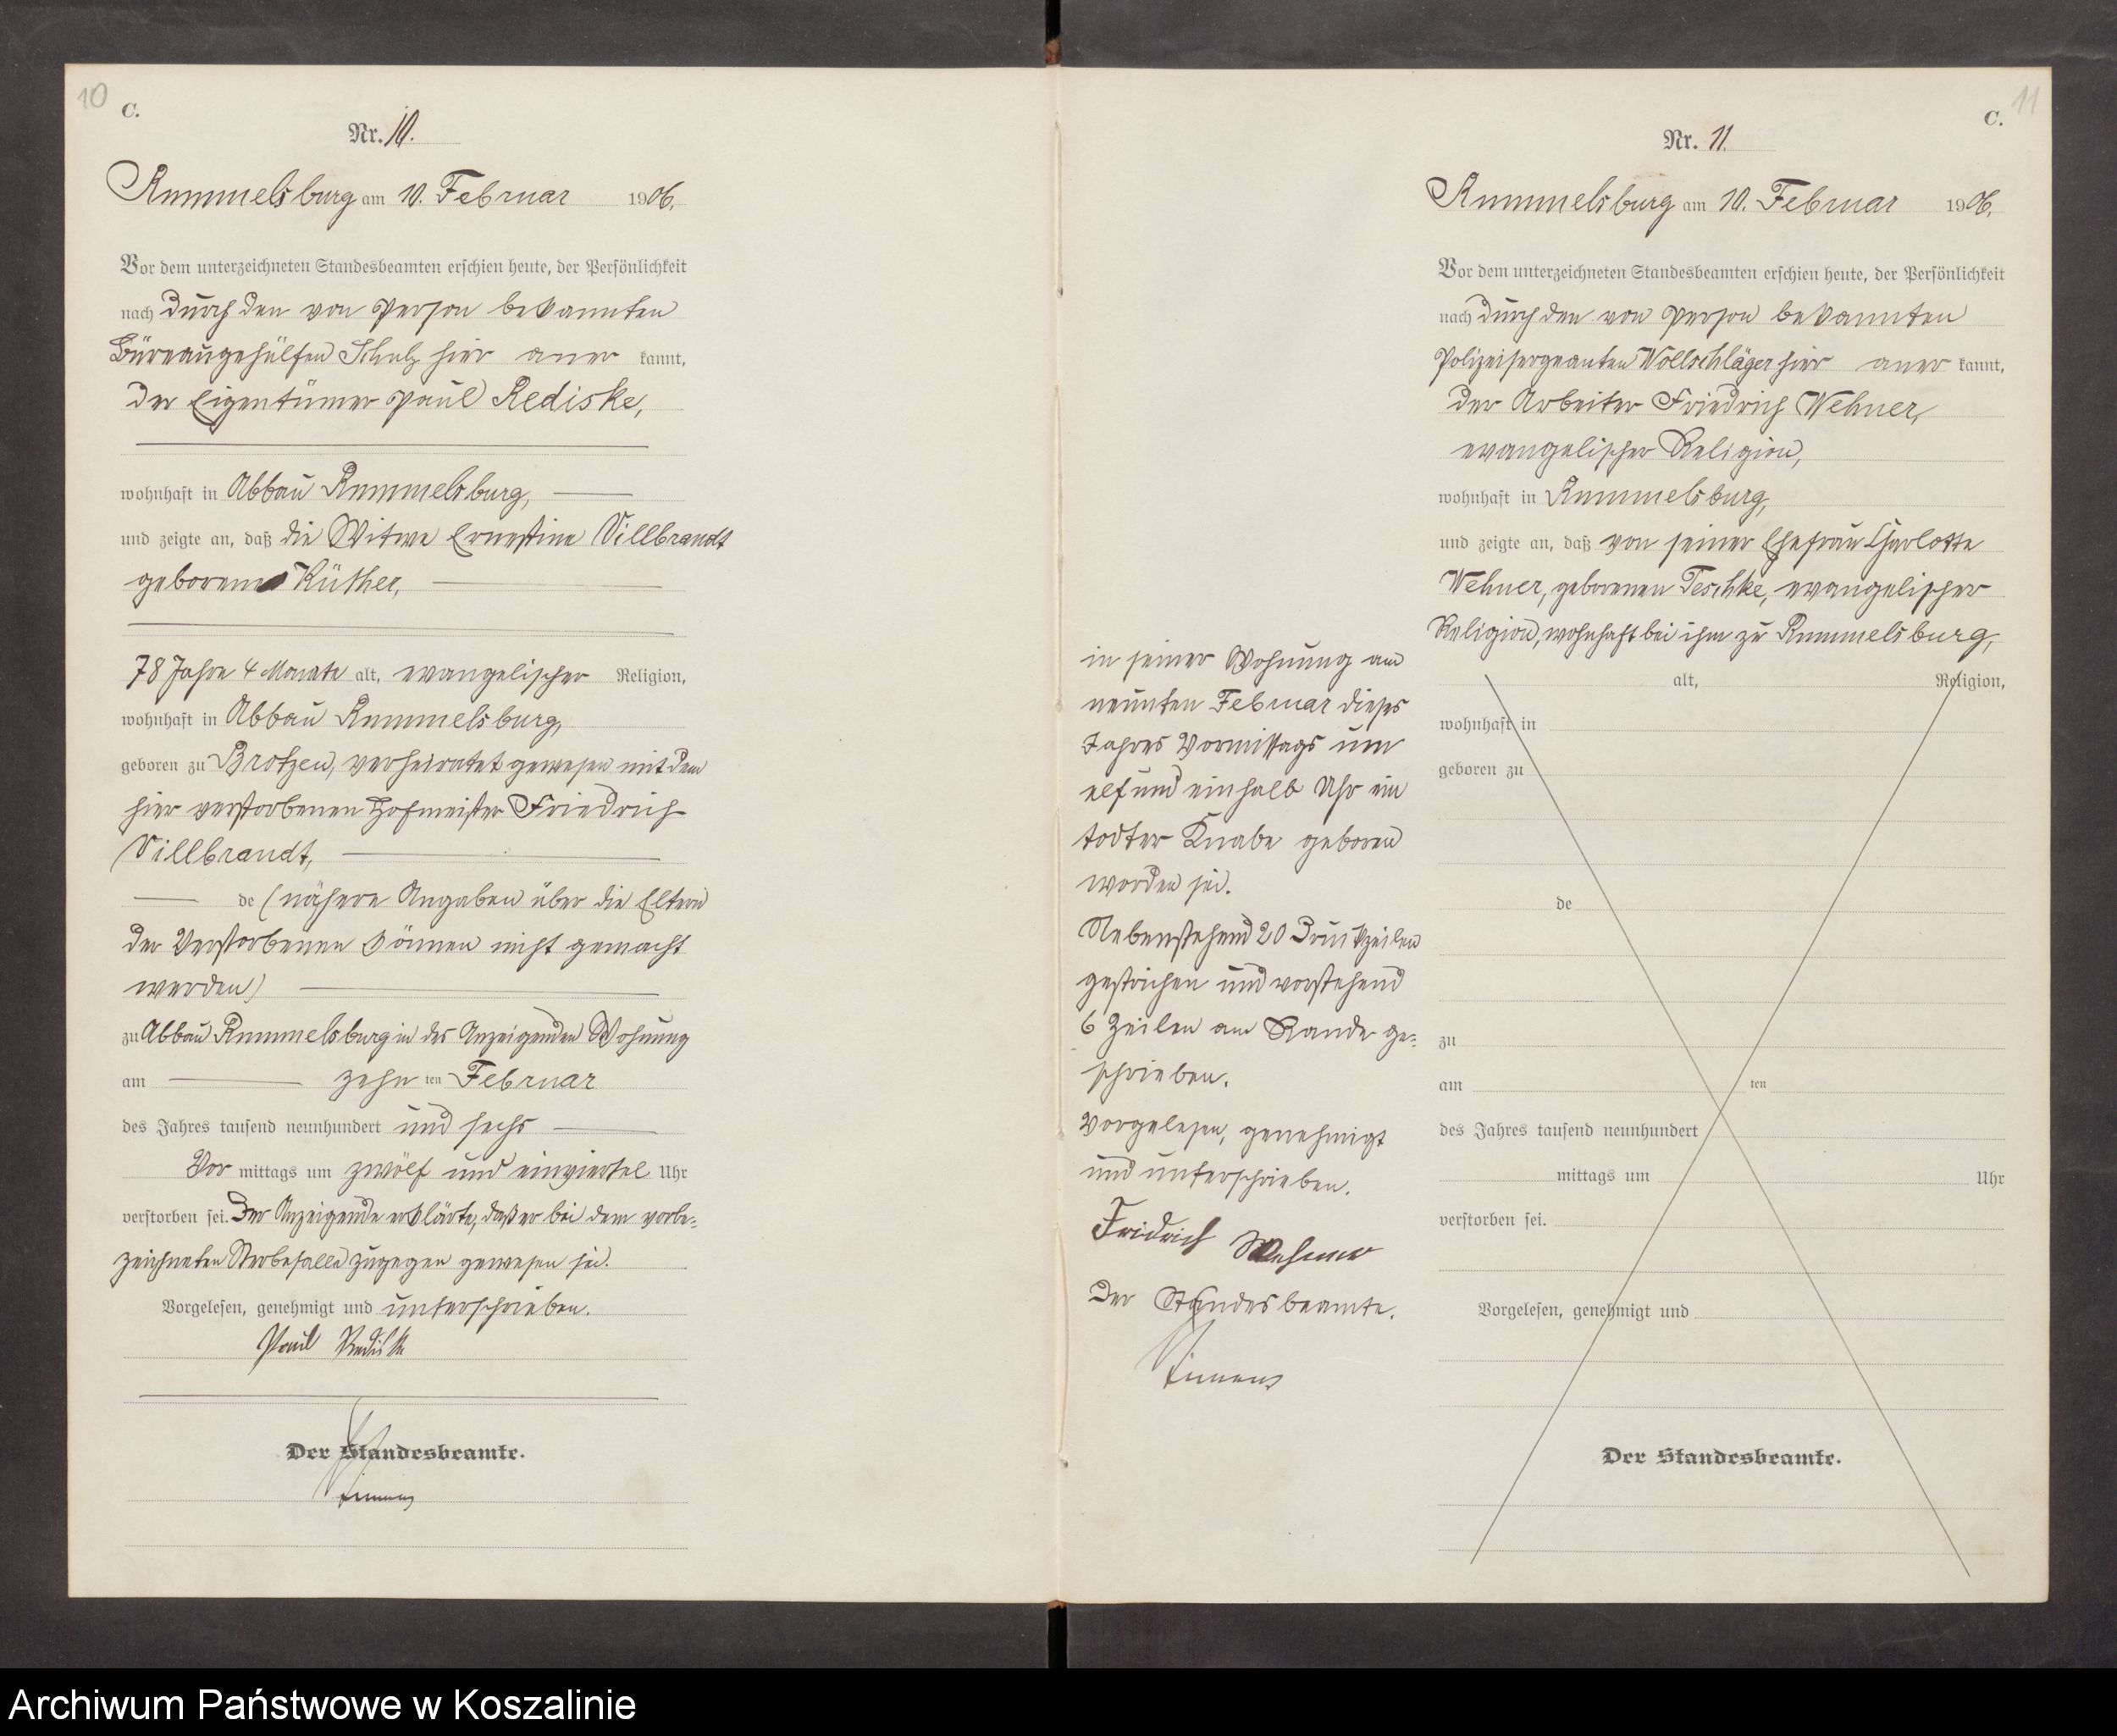 10
C.
Nr. 10.
Rummelsburg am 10. Februar 1906.
Vor dem unterzeichneten Standesbeamten erschien heute, der Persönlichkeit
nach durch den von Person bekannten
Büreaugehülfen Schulz hier aner kannt,
der Eigentümer Paul Rediske,
wohnhaft in Abbau Rummelsburg,
und zeigte an, daß die Witwe Ernestine Villbrandt
geborene Küther,
78 Jahre 4 Monate alt, evangelischer Religion,
wohnhaft in Abbau Rummelsburg,
geboren zu Brotzen, verheiratet gewesen mit dem
hier verstorbenen Hofmeister Friedrich
Villbrandt,
de (nähere Angaben über die Eltern
der Verstorbenen können nicht gemacht
werden)
zu Abbau Rummelsburg in des Anzeigenden Wohnung
am zehn ten Februar
des Jahres tausend neunhundert und sechs
Vor mittags um zwölf und einviertel Uhr
verstorben sei. Der Anzeigende erklärte, daß er bei dem vorbe-
zeichneten Sterbefalle zugegen gewesen sei.
Vorgelesen, genehmigt und unterschrieben.
Paul Rediske
Der Standesbeamte.
11
C.
Nr. 11.
Rummelsburg am 10. Februar 1906.
Vor dem unterzeichneten Standesbeamten erschien heute, der Persönlichkeit
nach durch den von Person bekannten
Polizeisergeanten Wollschläger hier aner kannt,
der Arbeiter Friedrich Wehner,
evangelischer Religion,
wohnhaft in Rummelsburg,
und zeigte an, daß von seiner Ehefrau Charlotte
Wehner, geborenen Teschke, evangelischer
Religion, wohnhaft bei ihm zu Rummelsburg,
in seiner Wohnung am
neunten Februar dieses
Jahres Vormittags um
elf und einhalb Uhr ein
todter Knabe geboren
worden sei.
Nebenstehend 20 Druckzeilen
gestrichen und vorstehend
6 Zeilen am Rande ge-
schrieben.
Vorgelesen, genehmigt
und unterschrieben.
Fridrich Wehner
Der Standesbeamte.
alt, Religion,
wohnhaft in
geboren zu
de
zu
am ten
des Jahres tausend neunhundert
mittags um Uhr
verstorben sei.
Vorgelesen, genehmigt und
Der Standesbeamte.
Archiwum Państwowe w Koszalinie